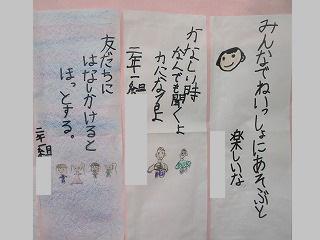 みんなでねいっしょにあそぶと
楽しいな
かなしい時
なんでも聞くよ
力になるよ
二年一組
友だちに
はなしかけると
ほっとする。
二年 組